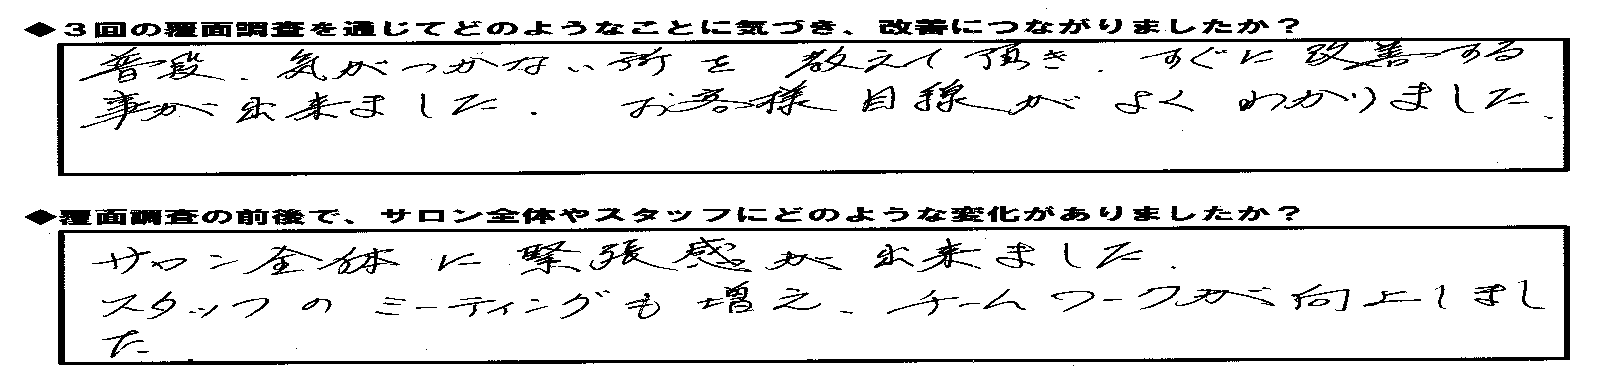 ◆３回の覆面調査を通じてどのようなことに気づき、改善につながりましたか？
普段、気がつかない所を教えて頂き、すぐに改善する
事が出来ました。お客様目線がよくわかりました。
◆覆面調査の前後で、サロン全体やスタッフにどのような変化がありましたか？
サロン全体に緊張感が出来ました。
スタッフのミーティングも増え、チームワークが向上しまし
た。